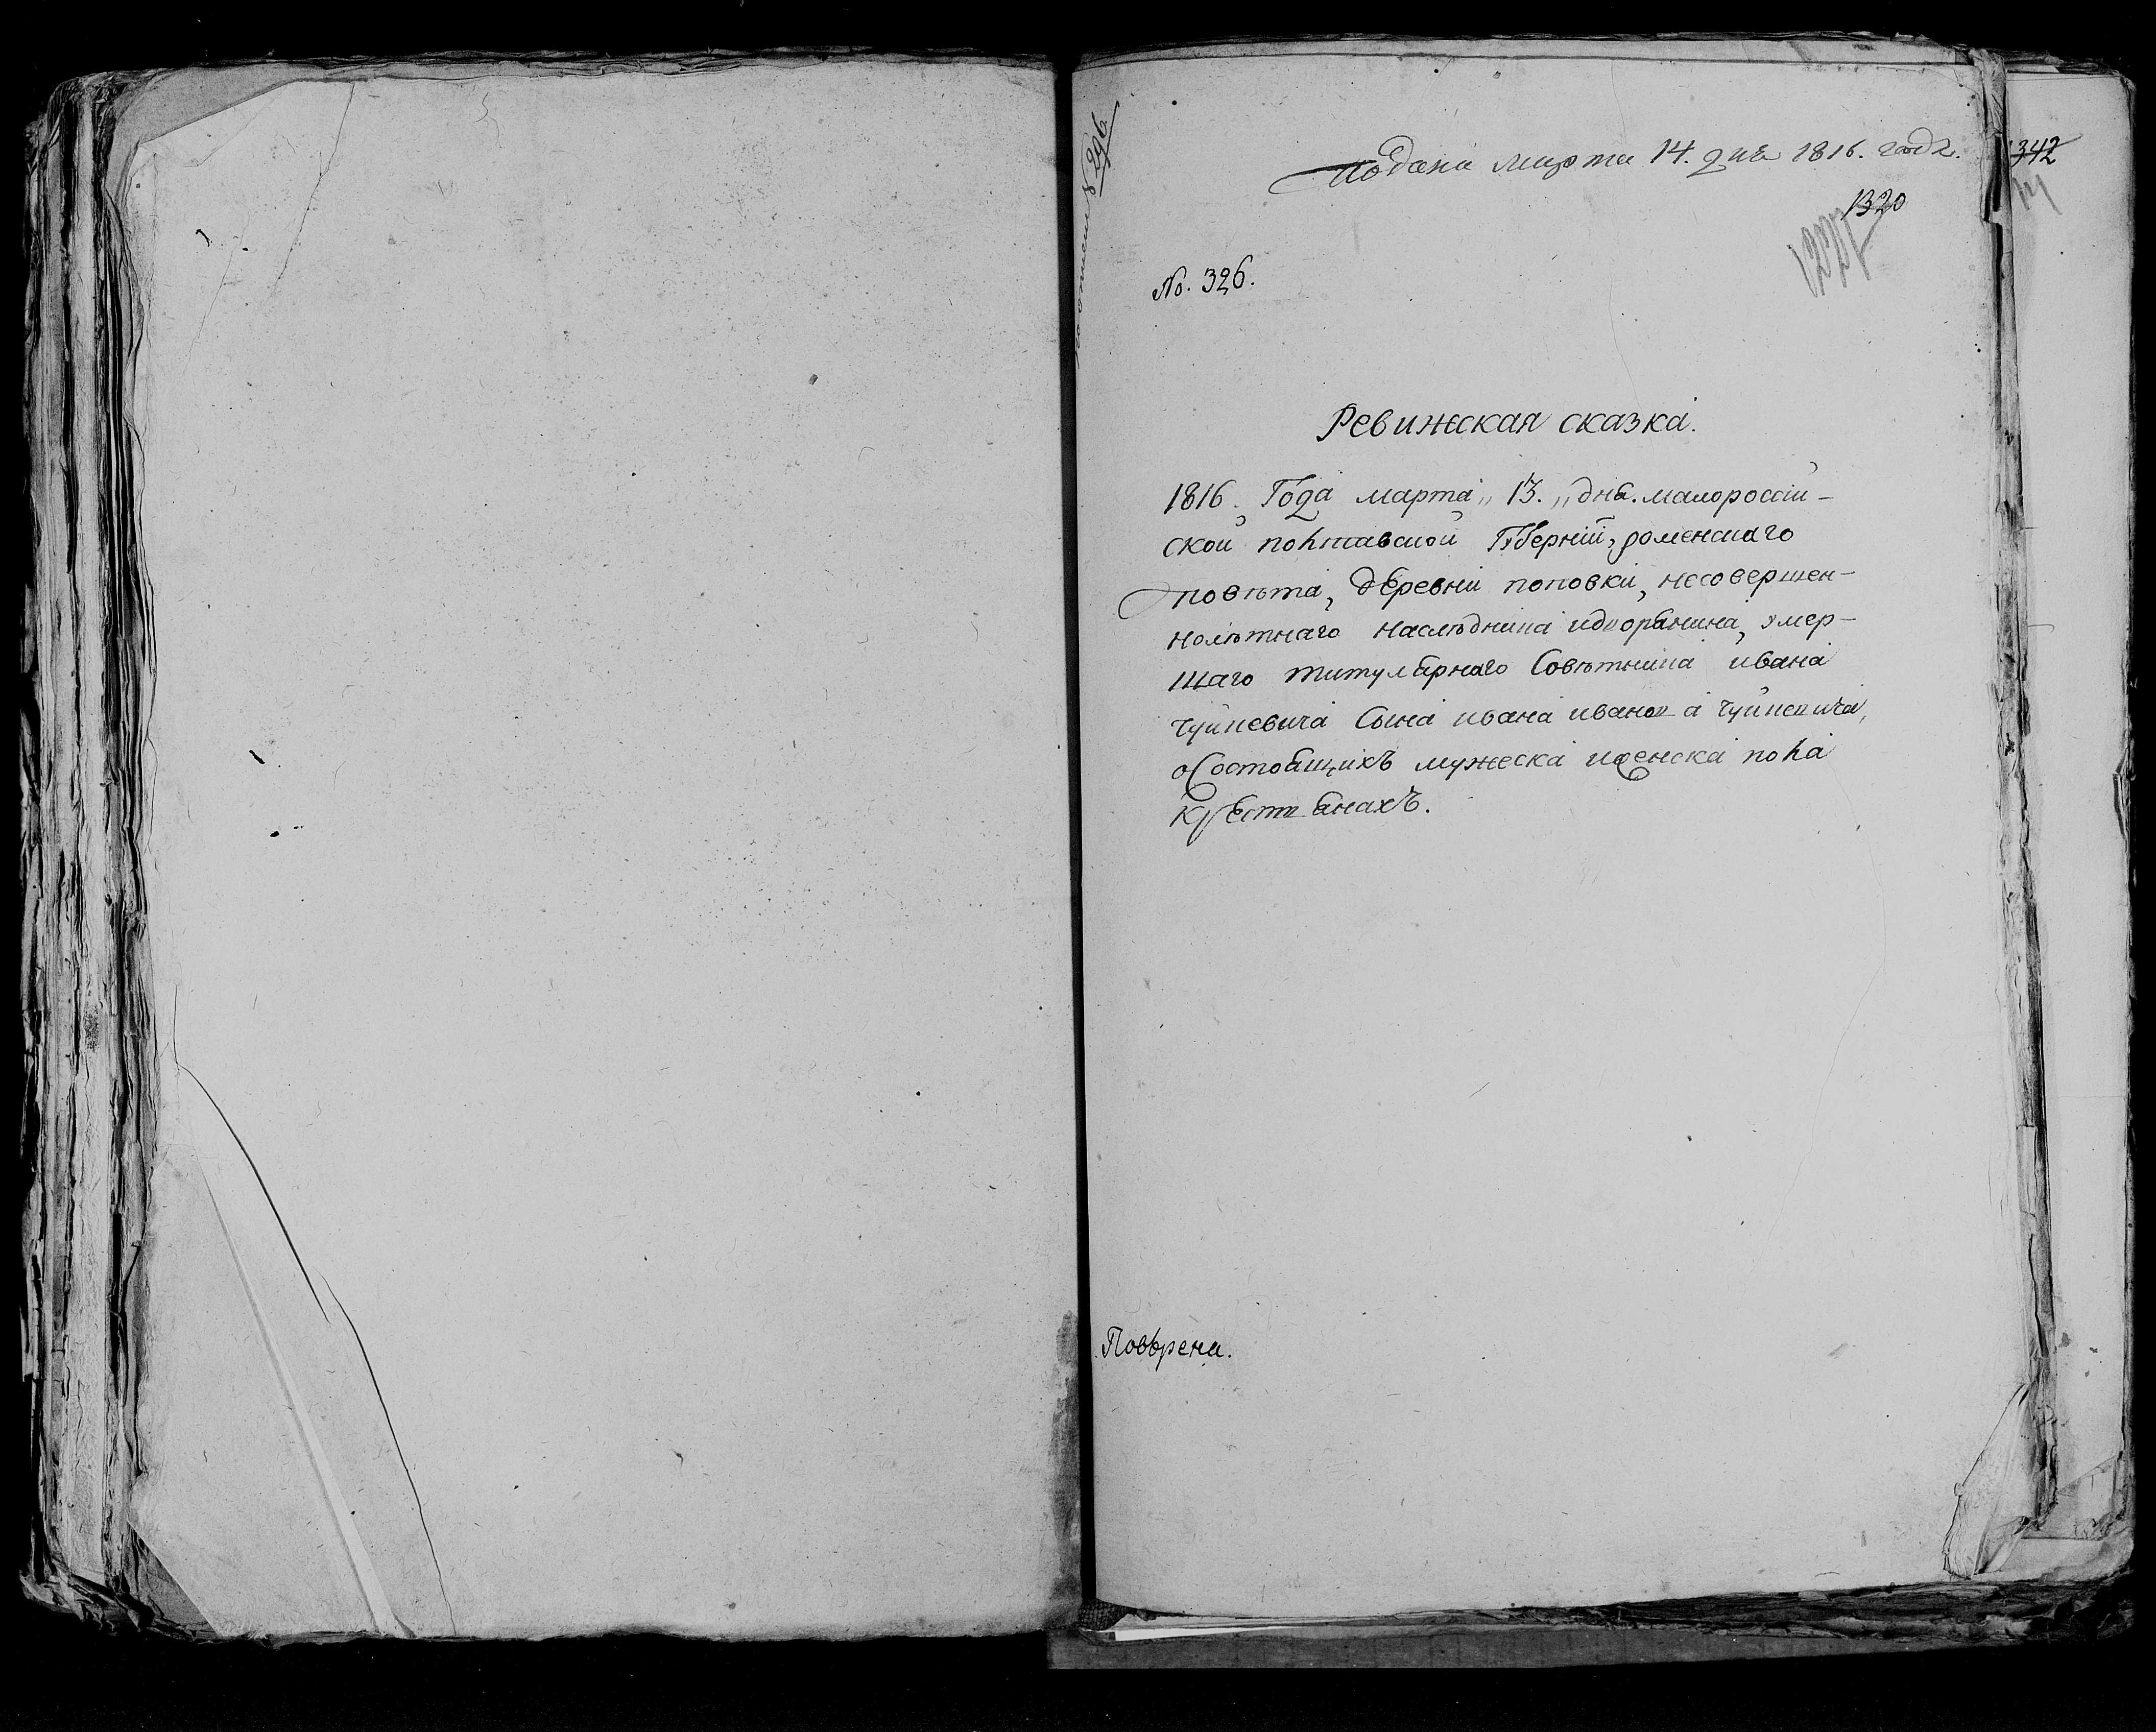 Подана марта 14. дня 1816. года.
1342
1320
№ 296.
No. 326.
Ревижская сказка.
1816. Года марта „ 13. „ дня. малороссій-
ской полтавской Губерніи, роменскаго
повѣта, деревни поповки, несовершен-
нолѣтнаго наслѣдника идворянина, умер-
шаго титулярнаго Совѣтника ивана
чуйкевича Сына ивана иванова чуйкевича,
оСостоящихъ мужеска иженска пола
крестянахъ.
Повѣрена.